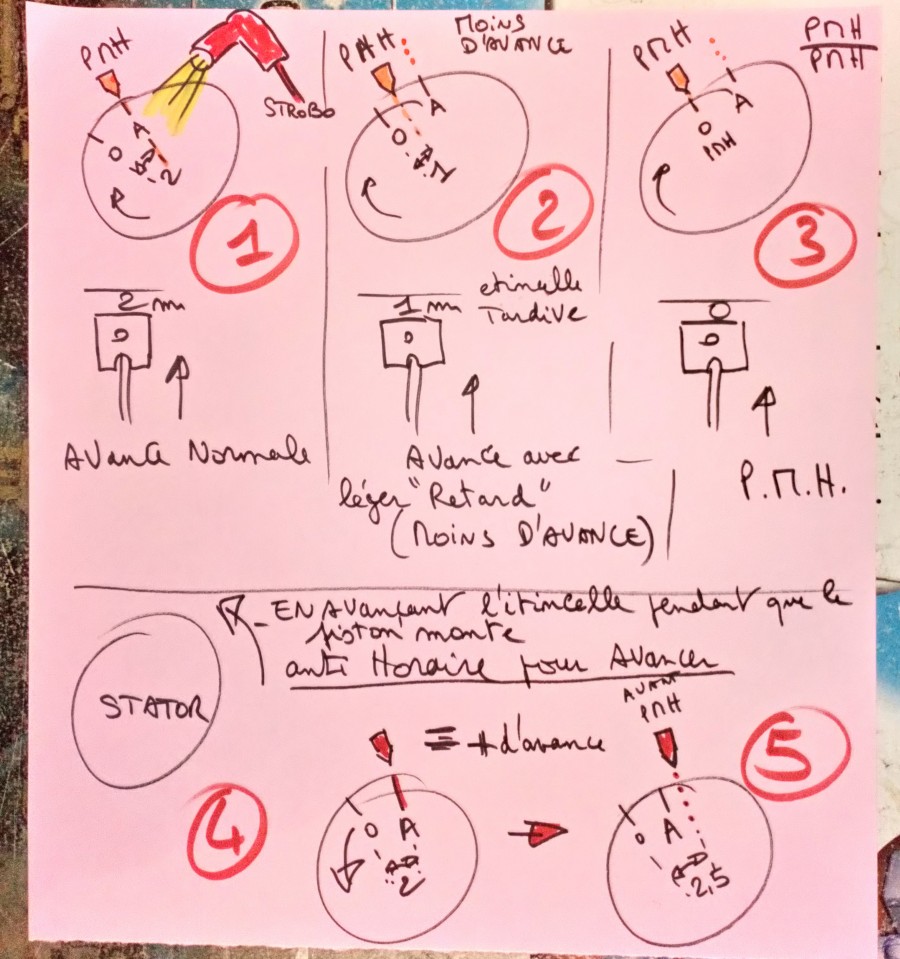 PMH
STROBO
A
O
2
1
2 mm
AVANCE NORMALE
MOINS
D'AVANCE
PMH
A
O
1
2
1 mm
etincelle
TARDIVE
AVANCE avec
léger "Retard"
(MOINS D'AVANCE)
PMH
PMH
PMH
A
O
PMH
3
0
P.M.H.
EN AVANçant l'étincelle pendant que le
piston monte
anti Horaire pour AVANCER
STATOR
= + d'avance
AVANT
PMH
4
O A
2
5
O A
2,5